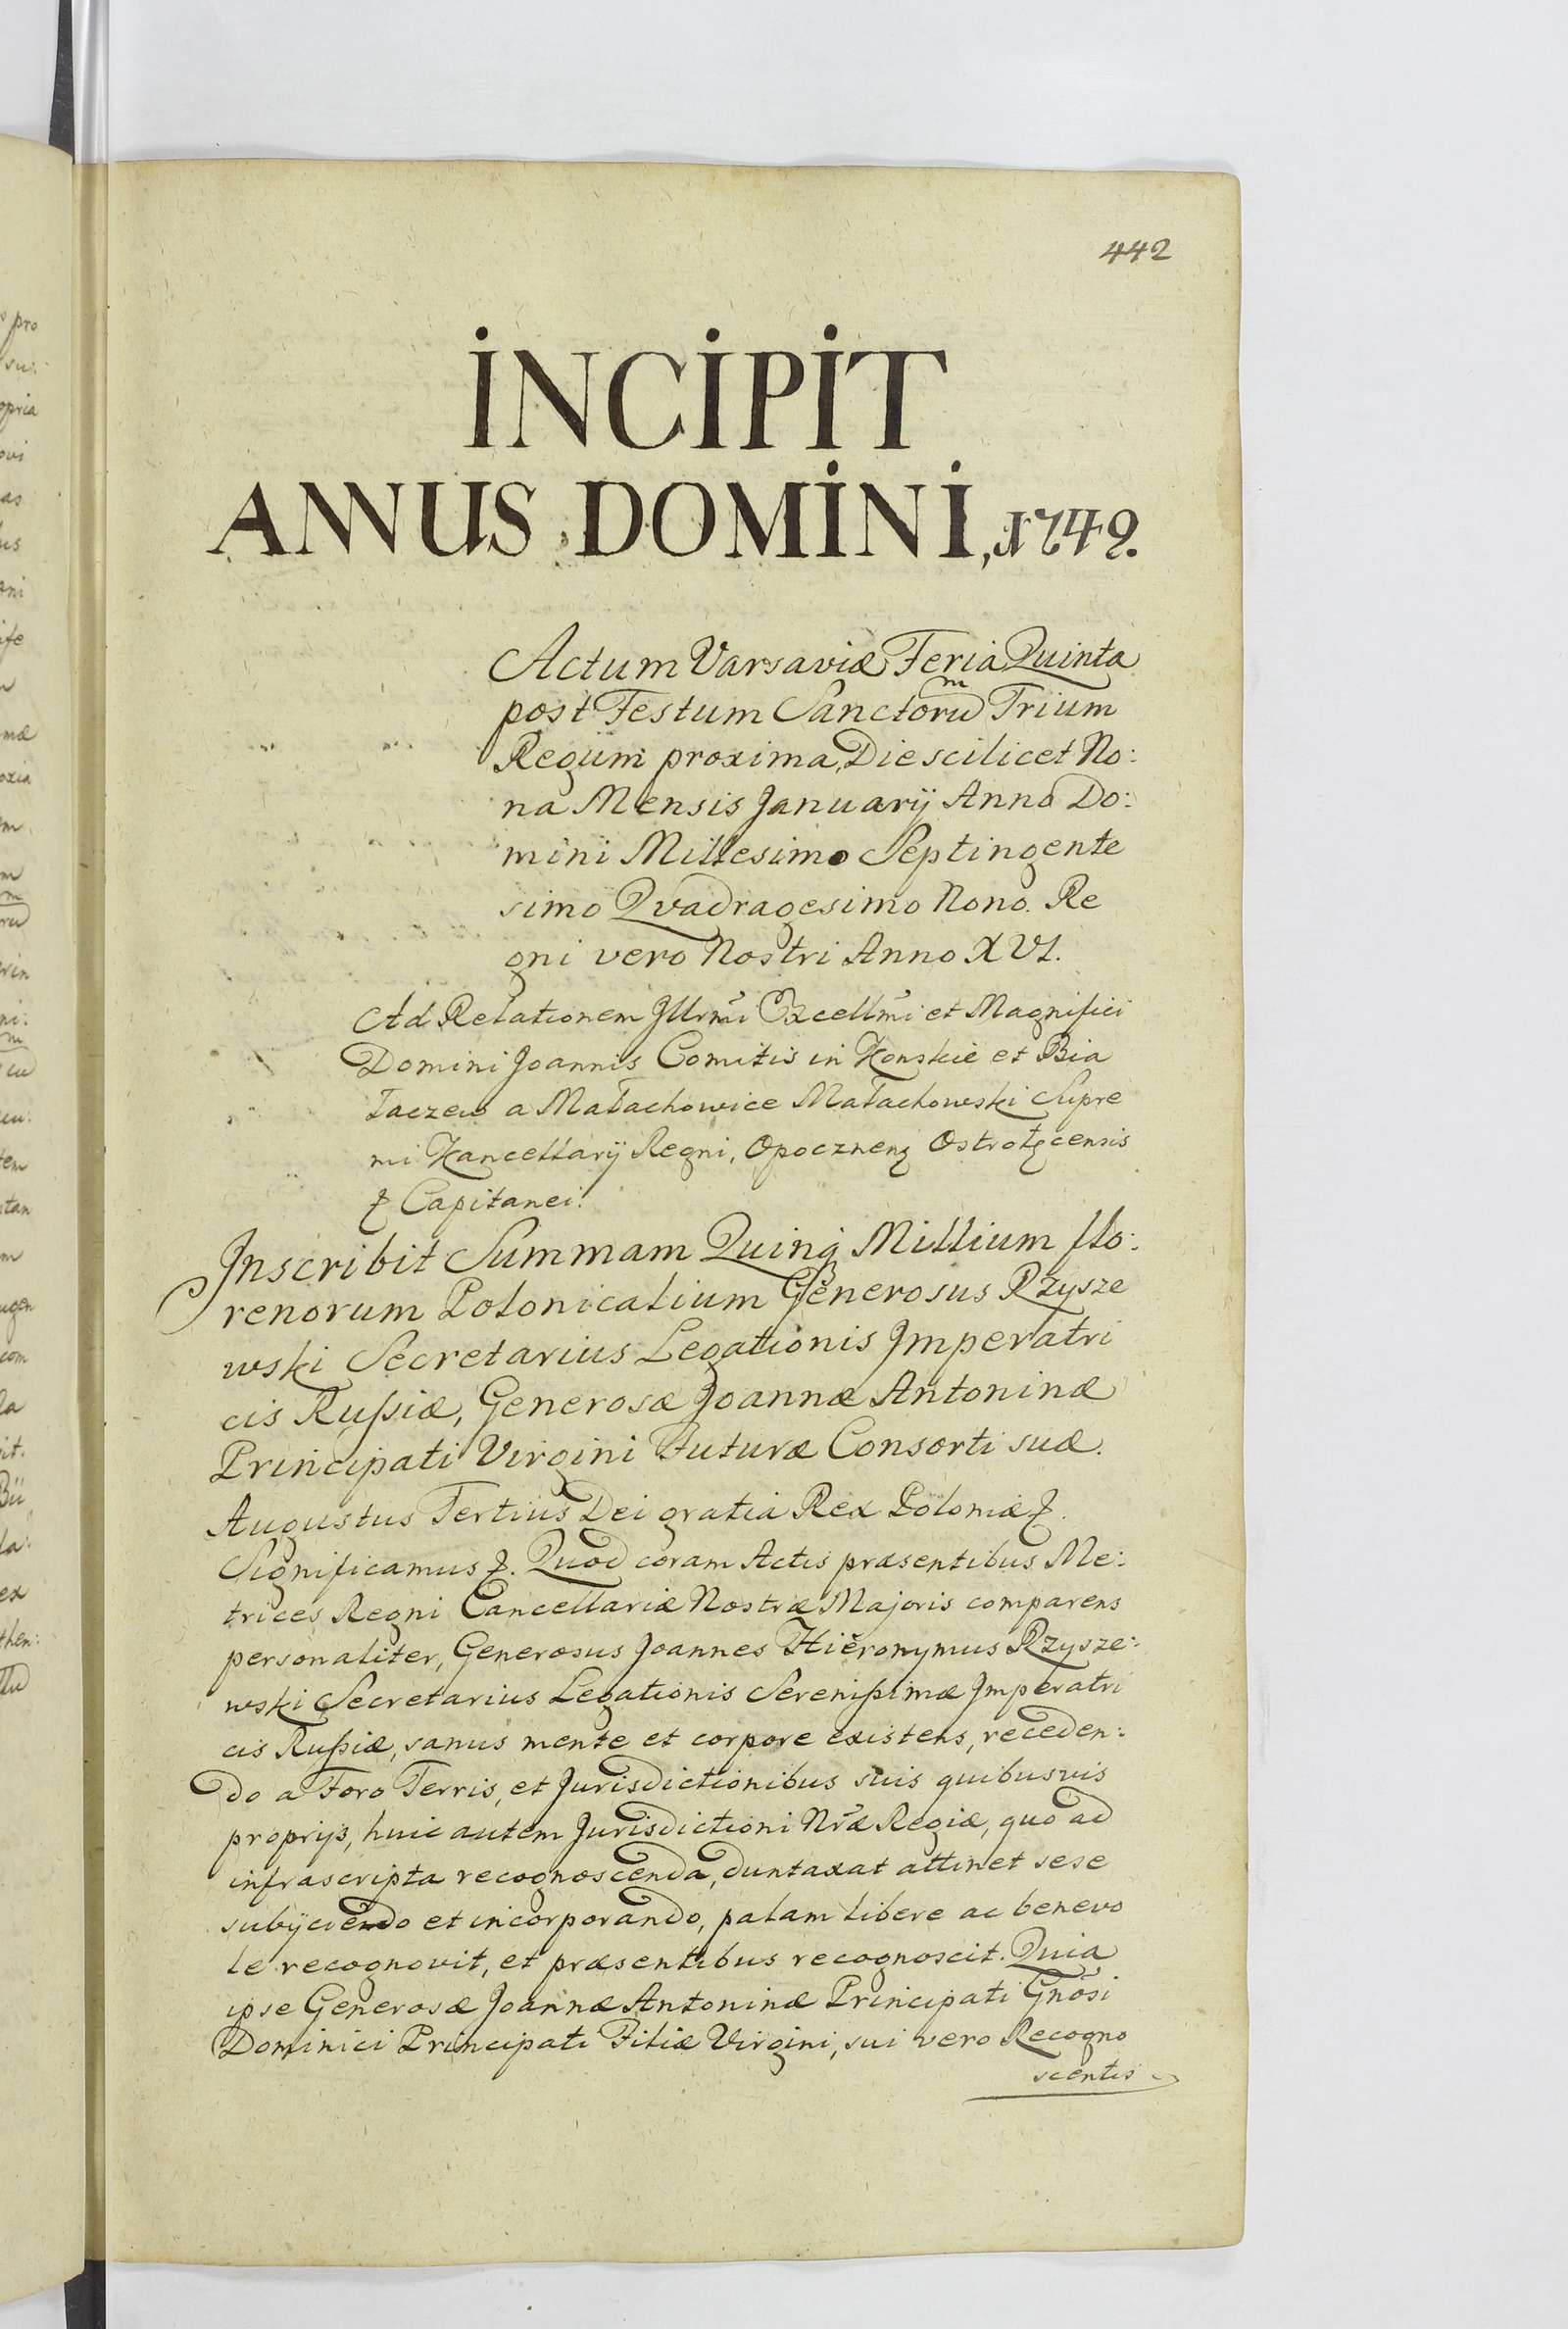 442
INCIPIT
ANNUS DOMINI, 1749.
Actum Varsaviæ Feria Quinta
post Festum Sanctorum Trium
Regum proxima, Die scilicet No:
na Mensis Januarij Anno Do:
mini Millesimo Septingente
simo Qvadragesimo Nono. Re
gni vero Nostri Anno XVI.
Ad Relationem Jllrm̃i Excellm̃i et Magnifici
Domini Joannis Comitis in Konskie et Bia
łaczew a Małachowice Małachowski Supre
mi Kancellarij Regni, Opocznenṣ Ostrołęcensis
& Capitanei.
Jnscribit Summam Quinq Millium flo:
renorum Polonicalium Generosus Rzysze
wski Secretarius Legationis Jmperatri
cis Rußiæ, Generosæ Joannæ Antoninæ
Principati Virgini Futuræ Consorti suæ.
Augustus Tertius Dei gratia Rex Poloniæ &.
Significamus &. Quod coram Actis præsentibus Me:
trices Regni Cancellariæ Nostræ Majoris comparens
personaliter, Generosus Joannes Hieronymus Rzysze:
wski Secretarius Legationis Serenißimæ Jmperatri
cis Rußiæ, sanus mente et corpore existens, receden:
do a Foro Terris, et Jurisdictionibus suis quibusvis
proprijs, huic autem Jurisdictioni Nr̃æ Regiæ, quo ad
infrascripta recognoscenda, duntaxat attinet sese
subijciendo et incorporando, palam libere ac benevo
le recognovit, et præsentibus recognoscit. Quia
ipse Generosæ Joannæ Antoninæ Principati Gñosi
Dominici Principati Filiæ Virgini, sui vero Recogno
scentis